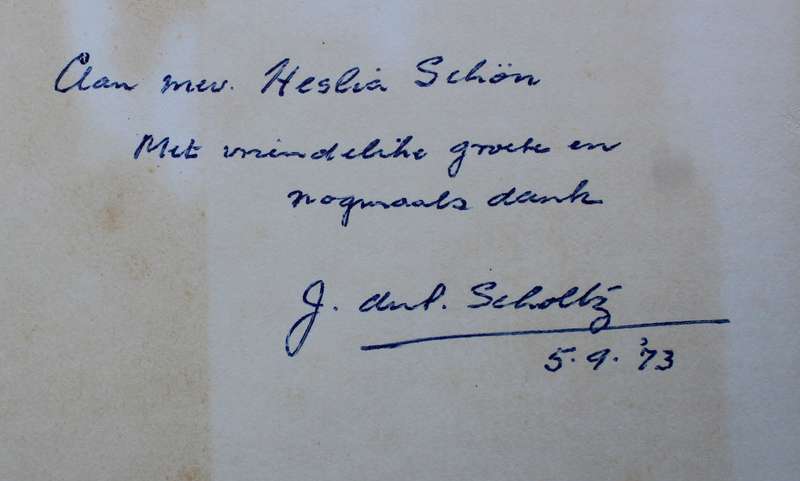 Aan mev. Heslia Schön
Met vriendelike groete en
nogmaals dank
J. du P. Scholtz
5.9.'73